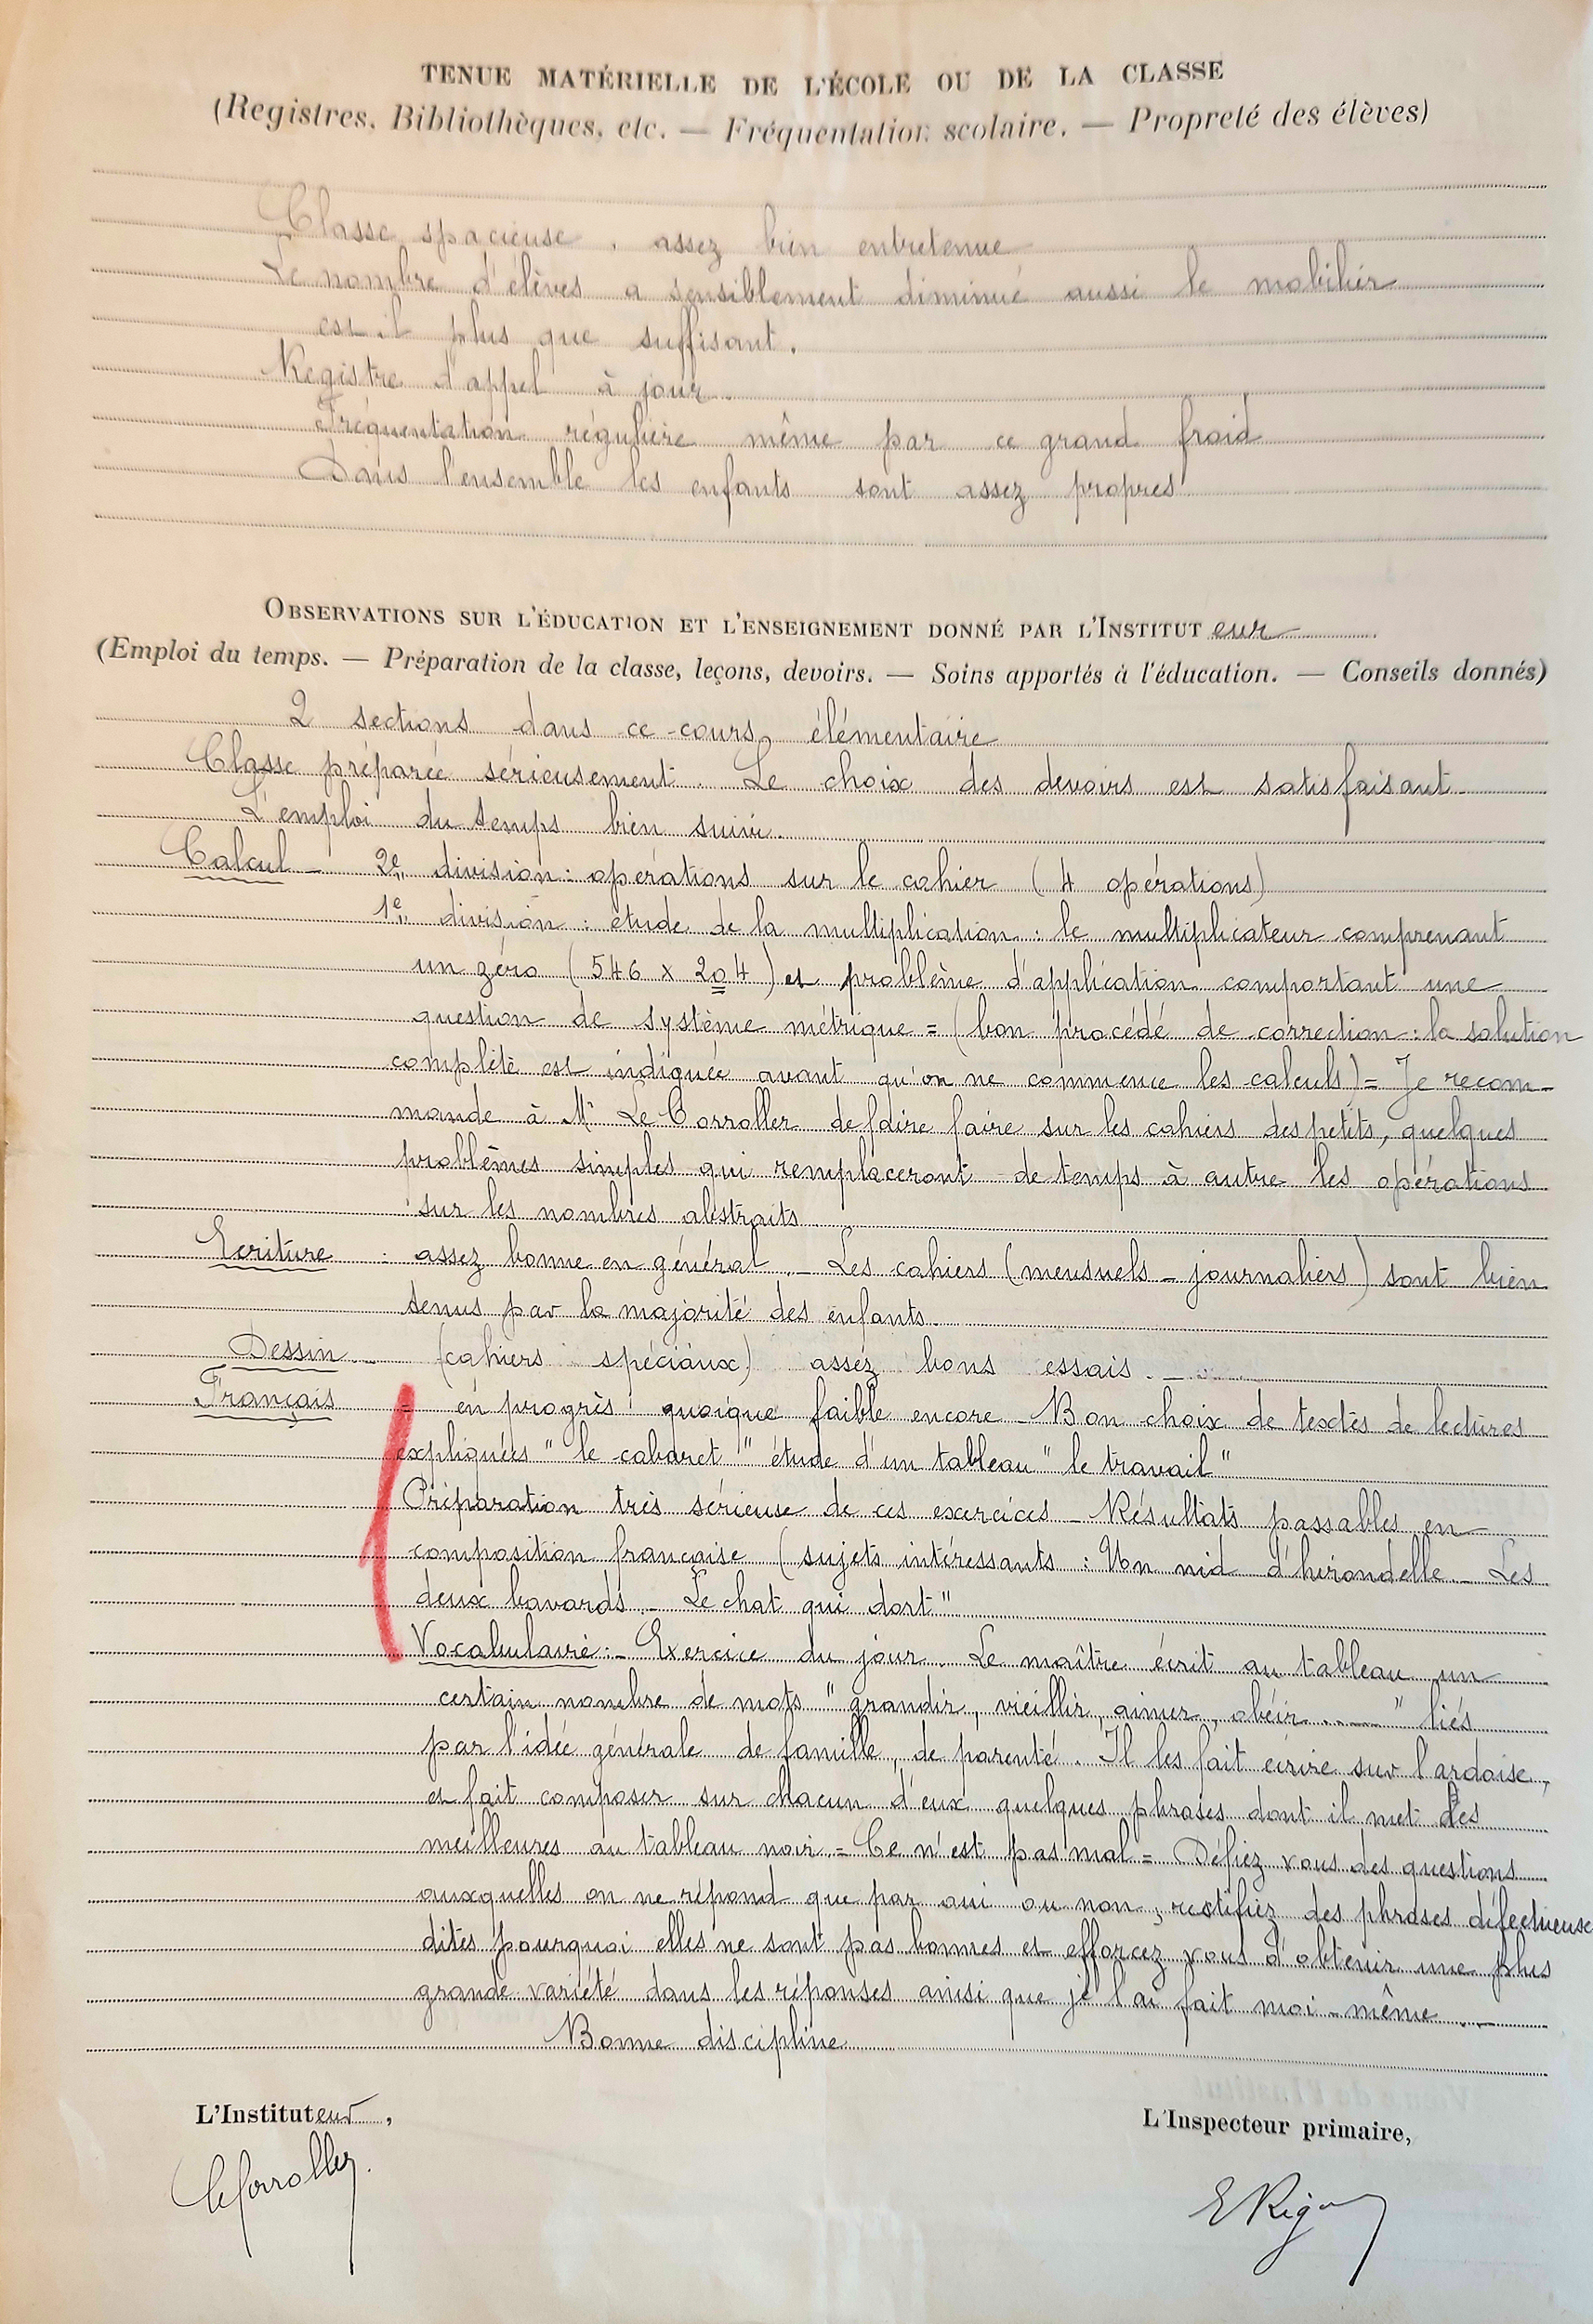 TENUE MATÉRIELLE DE L'ÉCOLE OU DE LA CLASSE
(Registres, Bibliothèques, etc. — Fréquentation scolaire. — Propreté des élèves)
Classe spacieuse, assez bien entretenue
Le nombre d'élèves a sensiblement diminué aussi le mobilier
est-il plus que suffisant.
Registre d'appel à jour
Fréquentation régulière même par ce grand froid
Dans l'ensemble les enfants sont assez propres
OBSERVATIONS SUR L'ÉDUCATION ET L'ENSEIGNEMENT DONNÉ PAR L'INSTITUT eur
(Emploi du temps. — Préparation de la classe, leçons, devoirs. — Soins apportés à l'éducation. — Conseils donnés)
2 sections dans ce cours élémentaire
Classe préparée sérieusement. Le choix des devoirs est satisfaisant
L'emploi du temps bien suivi.
Calcul – 2e division : opérations sur le cahier (4 opérations)
1e division : étude de la multiplication : le multiplicateur comprenant
un zéro (546 x 204) et problème d'application comportant une
question de système métrique = (bon procédé de correction : la solution
complète est indiquée avant qu'on ne commence les calculs) = Je recom-
mande à Mr Le Corroller de faire faire sur les cahiers des petits, quelques
problèmes simples qui remplaceront de temps à autre les opérations
sur les nombres abstraits
Ecriture : assez bonne en général – Les cahiers (mensuels – journaliers) sont bien
tenus par la majorité des enfants.
Dessin – (cahiers spéciaux) assez bons essais. –
Français = en progrès quoique faible encore – Bon choix de textes de lectures
expliquées " le cabaret " étude d'un tableau " le travail "
Préparation très sérieuse de ces exercices – Résultats passables en
composition française (sujets intéressants : Un nid d'hirondelle – Les
deux bavards – Le chat qui dort "
Vocabulaire : – Exercice du jour. Le maître écrit au tableau un
certain nombre de mots " grandir, vieillir, aimer, obéir ...... " liés
par l'idée générale de famille, de parenté. Il les fait écrire sur l'ardoise,
et fait composer sur chacun d'eux quelques phrases dont il met les
meilleures au tableau noir = Ce n'est pas mal = Défiez vous des questions
auxquelles on ne répond que par oui ou non, rectifiez des phrases défectueuse
dites pourquoi elles ne sont pas bonnes et efforcez vous d'obtenir une plus
grande variété dans les réponses ainsi que je l'ai fait moi-même –
Bonne discipline
L'Instituteur,
L'Inspecteur primaire,
Le Corroller